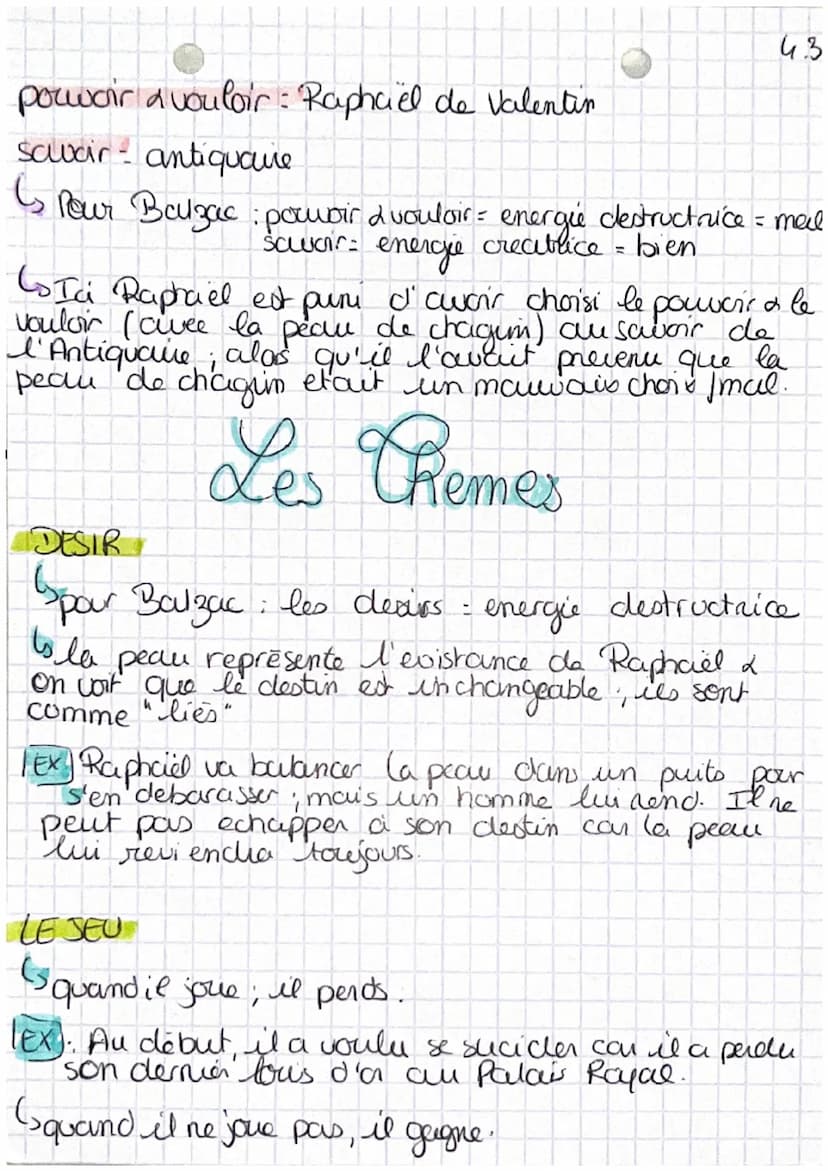 4.3
pouvoir & vouloir = Raphaël de Valentin
savoir = antiquaire
↳ Pour Balzac : pouvoir & vouloir = energie destructrice = mal
savoir = energie creatrice = bien
↳ Ici Raphaël est puni d'avoir choisi le pouvoir & le
vouloir (avec la peau de chagrin) au savoir de
l'Antiquaire ; alors qu'il l'avait prevenu que la
peau de chagrin etait un mauvais choix / mal.
Les Themes
DESIR
↳ pour Balzac : les desirs = energie destructrice
↳ la peau représente l'existance de Raphaël &
on voit que le destin est inchangeable ; ils sont
comme "liés"
EX Raphaël va balancer la peau dans un puits pour
s'en debarasser ; mais un homme lui rend. Il ne
peut pas echapper à son destin car la peau
lui reviendra toujours.
LE JEU
↳ quand il joue ; il perds.
EX : Au début, il a voulu se sucider car il a perdu
son dernier louis d'or au Palais Royal.
↳ quand il ne joue pas, il gagne.